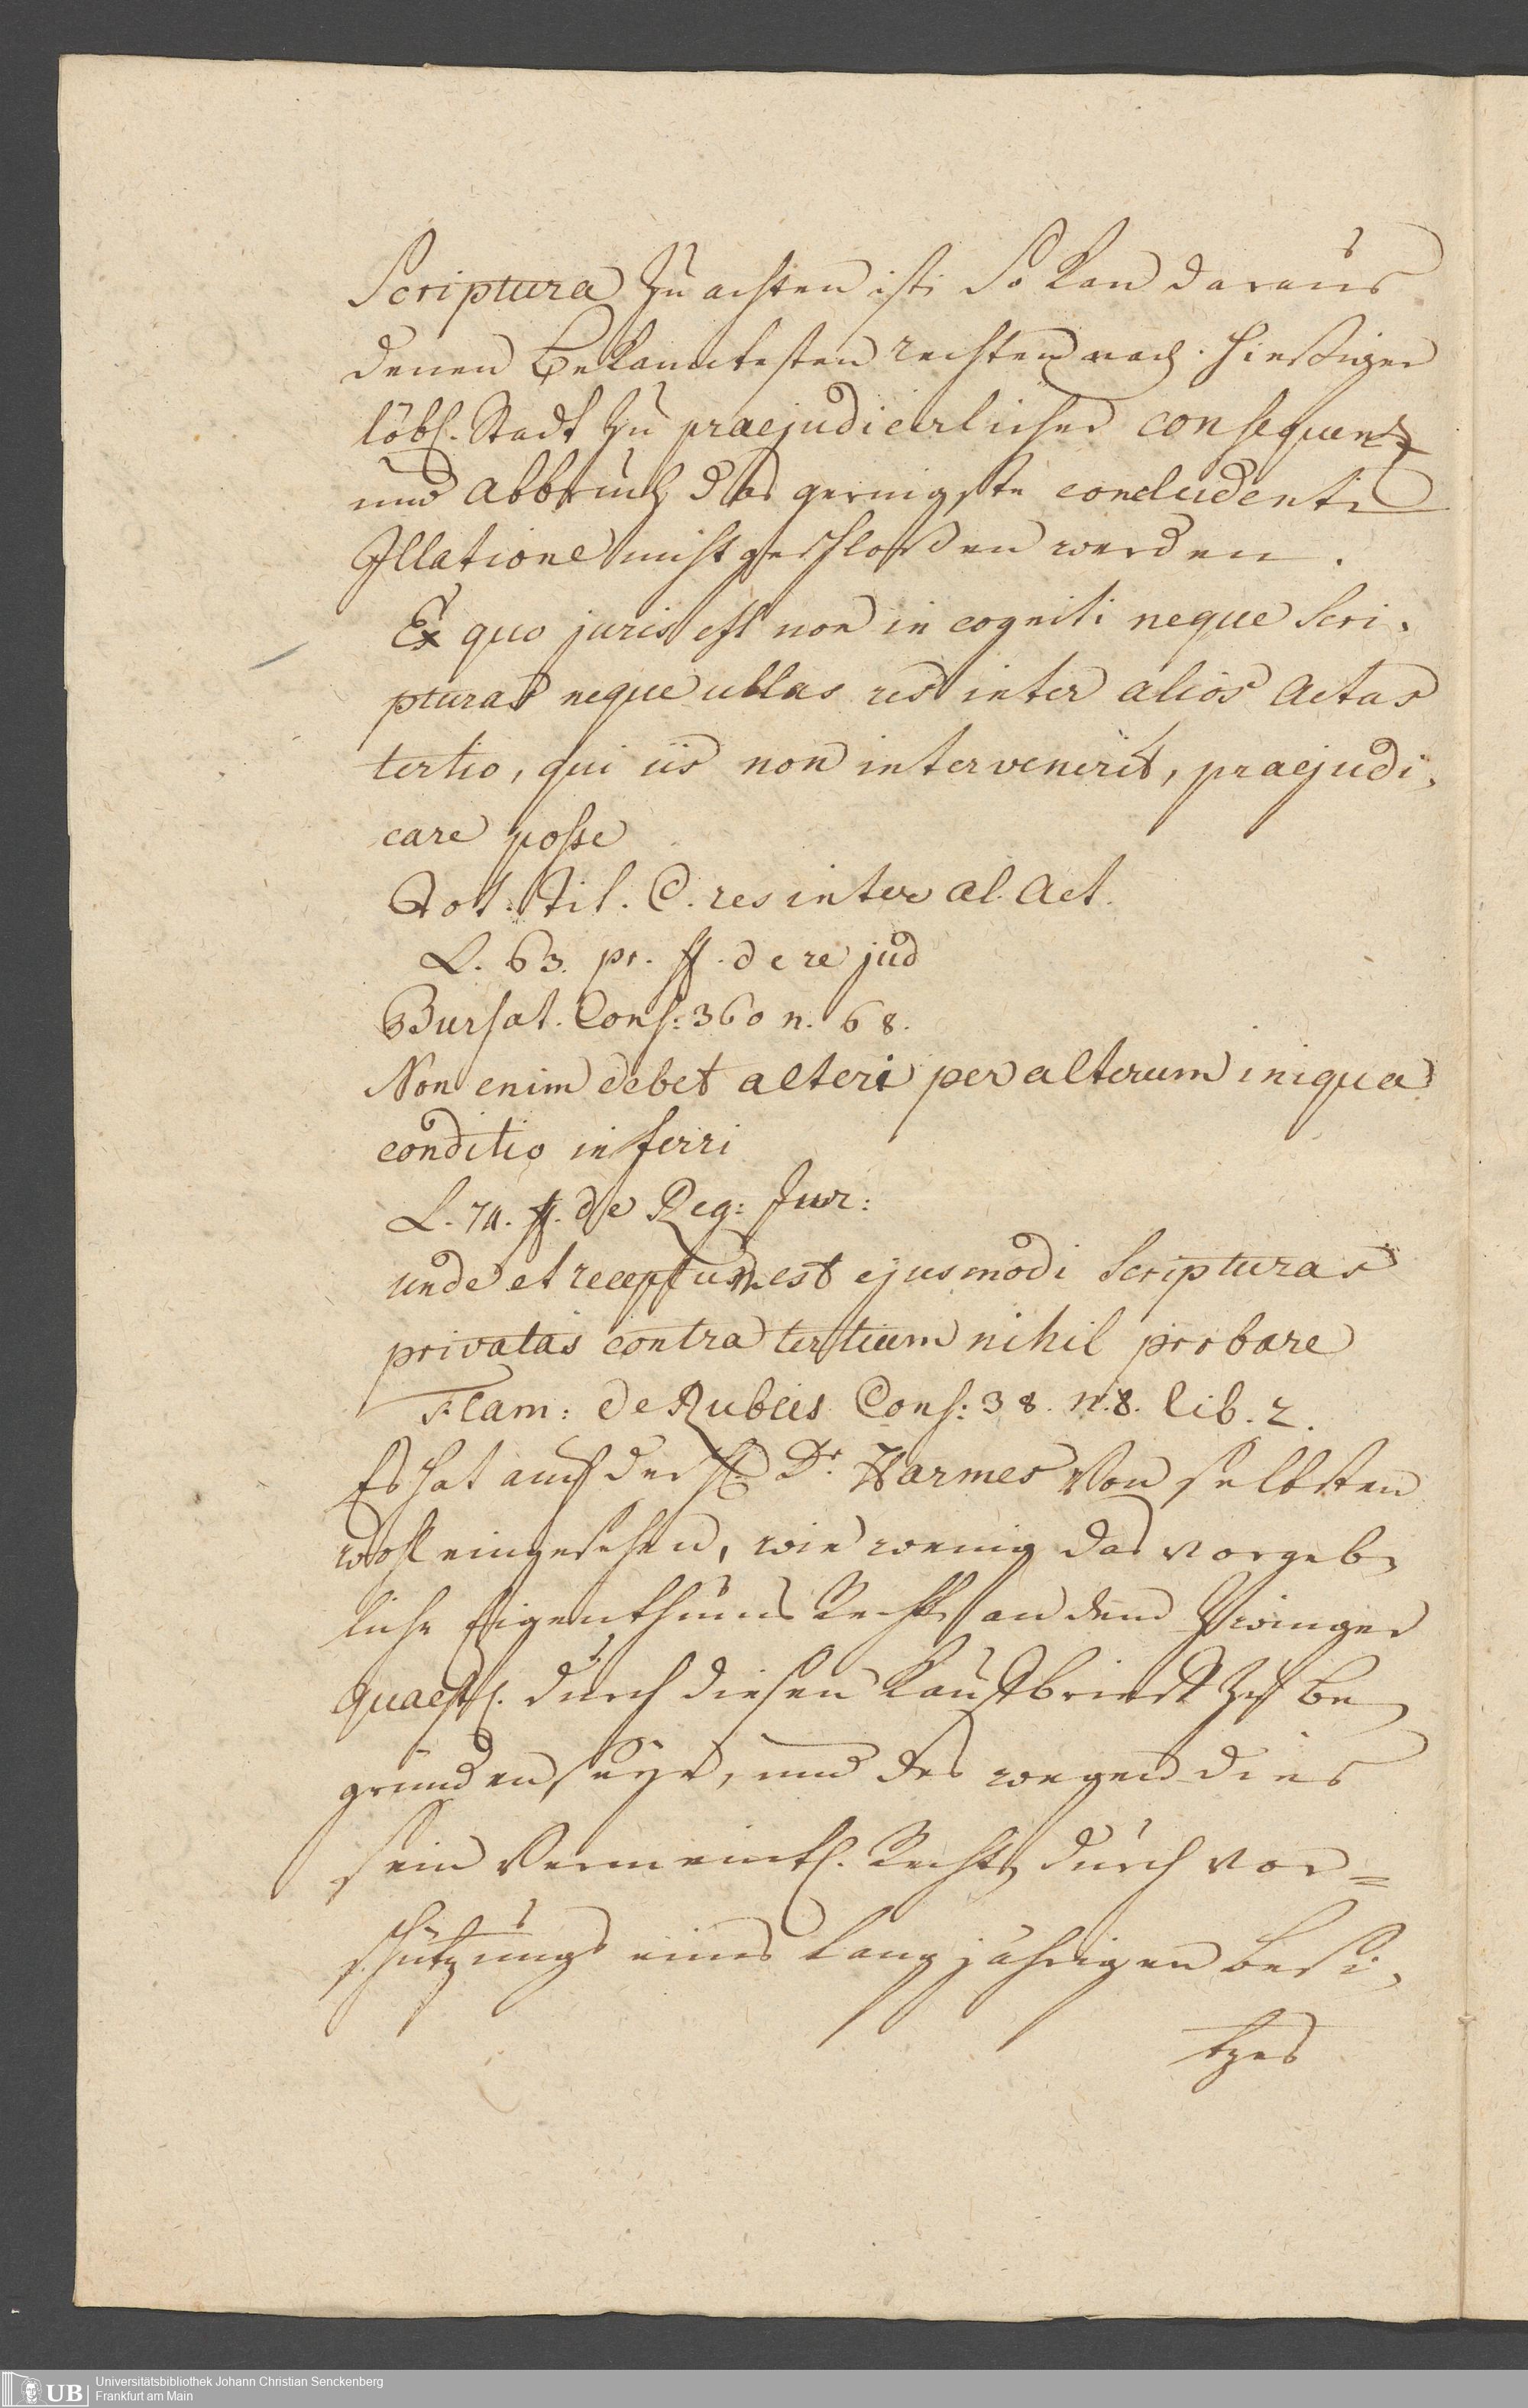 Scriptura zu achten ist. So kan daraus
denen bekanntesten rechten nach hießiger
löbl. Stadt zu praejudicirlicher consequenz
und abbruch das geringste concludenti
Illatione nicht geschloßen werden.
Ex quo juris est non in cogniti neque Scri,
pturas neque ullas res inter alios actas
tertio, qui iis non intervenerit, praejudi,
care posse
Tot. tit. C. res inter al. Act.
L. 63. pr. ff. de re jud
Bursat. Cons: 360 n. 68.
Non enim debet alteri per alterum iniqua
conditio inferri
L. 74. ff. de Reg: Jur:
unde et receptum est ejusmodi Scripturas
privatas contra tertium nihil probare
Flam: de Rubeis Cons: 38. n. 8. lib. 2.
Es hat auch der H. Dr. Harmes von selbsten
wohl eingesehen, wie wenig das vorgeb,
liche Eigenthums Recht an dem Zwinger
quaest. durch diesen Kaufbrieff zu be,
gründen seye, und des wegen dies
sein vermeintl. Recht durch vor=
schützung eines lang jährigen Besi,
tzes
Universitätsbibliothek Johann Christian Senckenberg
Frankfurt am Main
UB